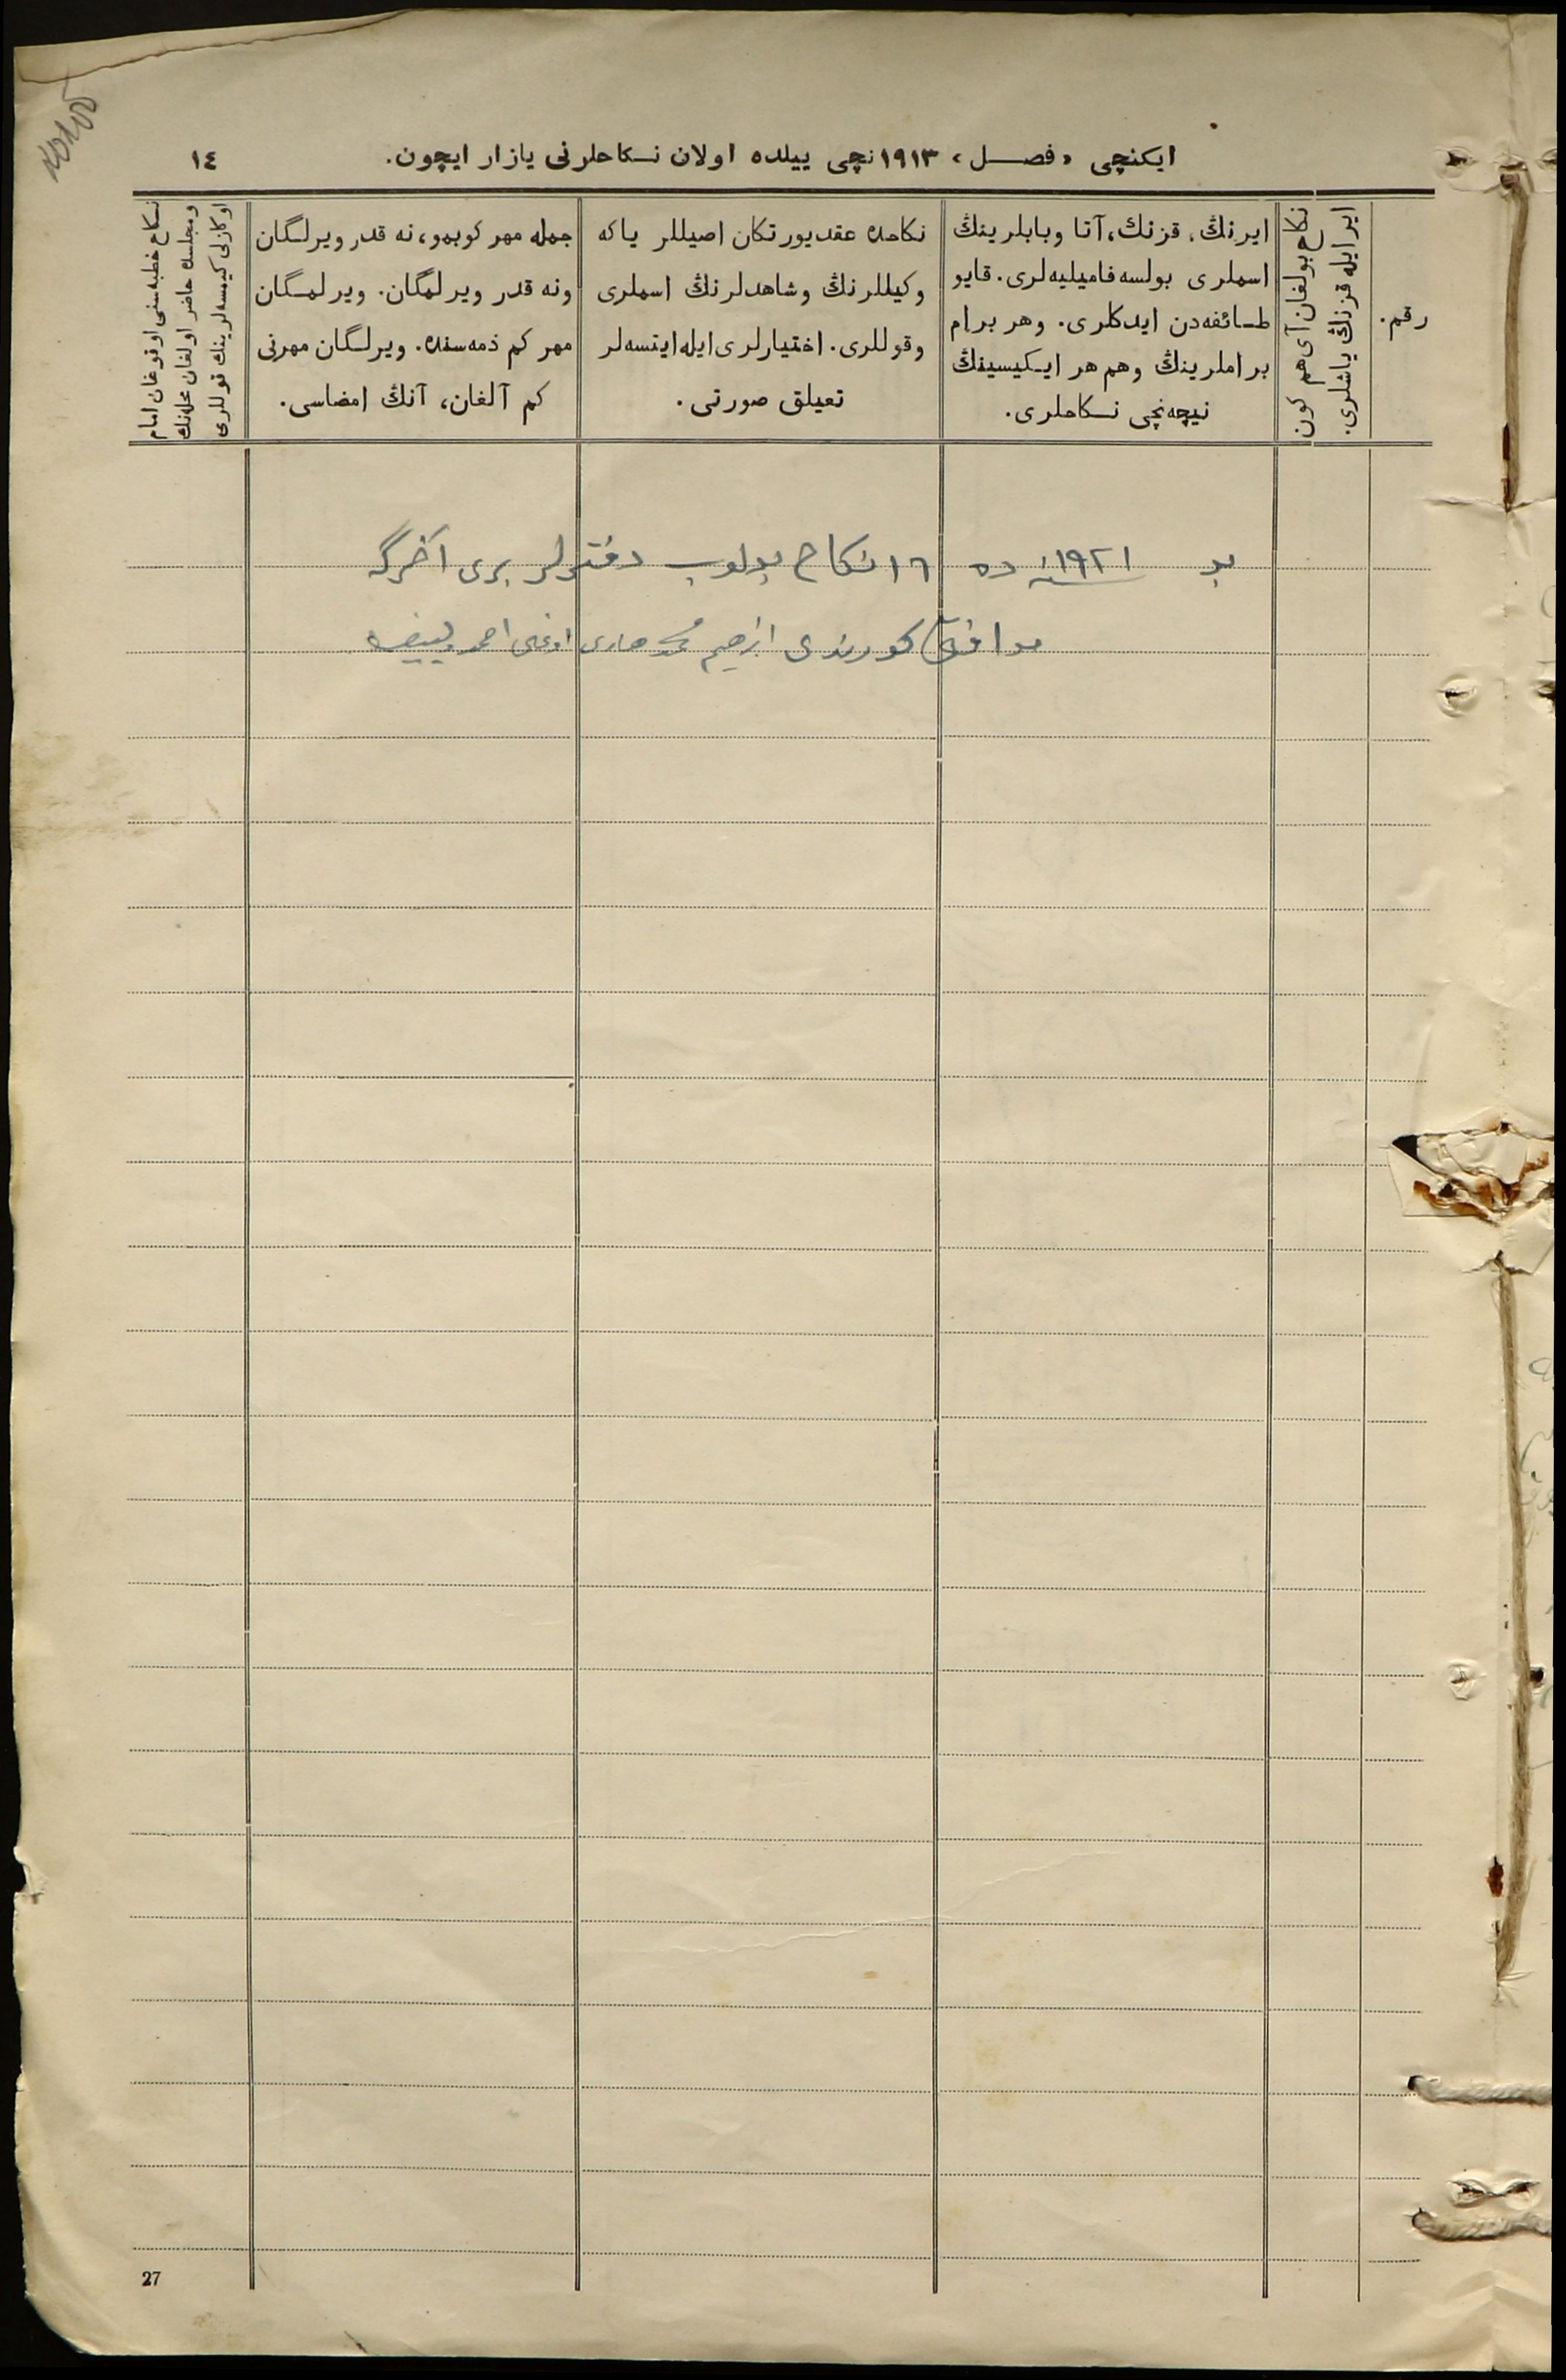 ایكنچی «فصل» ١٩١٣نچی ییلده اولان نكاحلرنی یازار ایچون.
١٤
رقم.
ایر ایله قزنڭ یاشلری.
نكاح بولغان آی هم كون
ایرنڭ، قزنڭ، آتا وبابلرینڭ
اسملری بولسه فامیلیه‌لری. قایو
طائفه‌دن ایدكلری. وهر برام
براملرینڭ وهم هر ایكیسینڭ
نیچه‌نچی نكاحلری.
نكاحده عقد یورتكان اصیللر یاكه
وكیللرنڭ وشاهدلرنڭ اسملری
وقوللری. اختیارلری ایله ایتسه‌لر
تعیلق صورتی.
جمله مهر كوبمو، نه قدر ویرلگان
ونه قدر ویرلمگان. ویرلمگان
مهر كم ذمه‌سنده. ویرلگان مهرنی
كم آلغان، آنڭ امضاسی.
نكاح خطبه‌سنی اوقوغان امام
ومجلسده حاضر اولغان محله‌نڭ
اوكازنی كیمسه‌لرینڭ قوللری
بو ١٩٢١نچی ده ١٦ نكاح بولوب دفترلر بری آخرگه
موافق كورندی ابراهیم محمدهادی اوغلی احمد
27